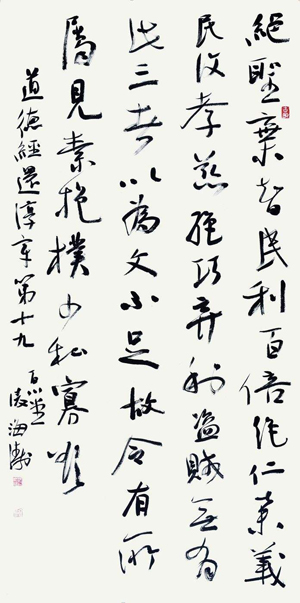 絕聖棄智民利百倍絕仁棄義
民復孝慈絕巧棄利盜賊無有
此三者以為文不足故令有所
屬見素抱樸少私寡欲
道德經還淳章第十九
凌海